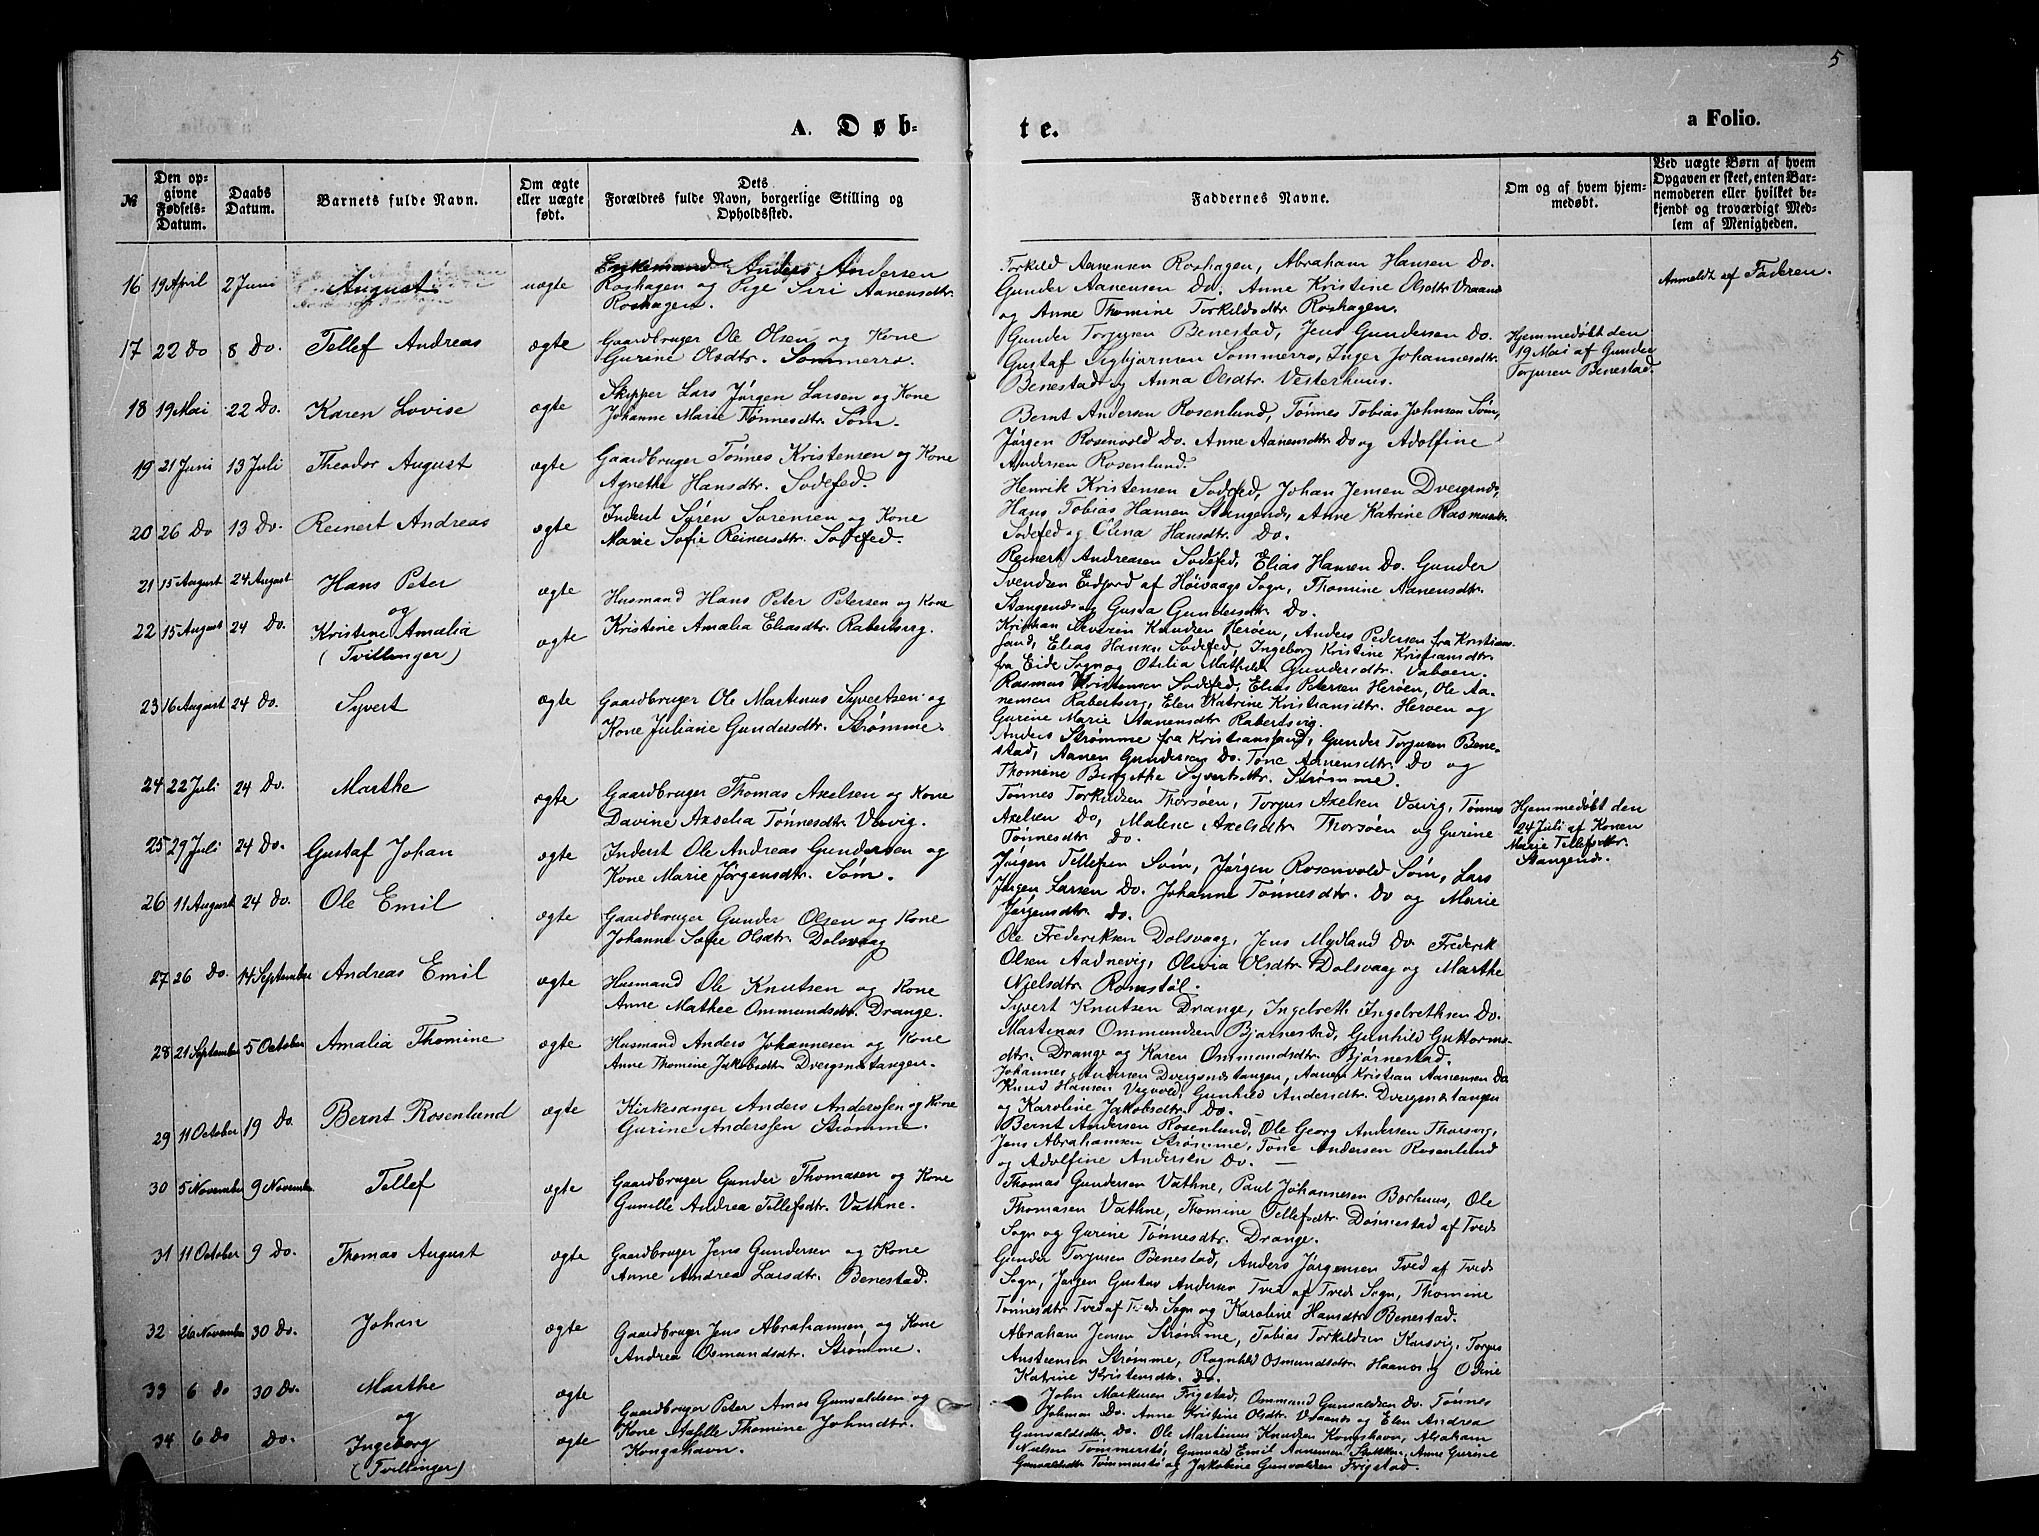 5
A. Døb-
te.
a Folio.
№
Den op-
givne
Fødsels-
Datum.
Daabs
Datum.
Barnets fulde Navn.
Om ægte
eller uægte
født.
Dets
Forældres fulde Navn, borgerlige Stilling og
Opholdssted.
Faddernes Navne.
Om og af hvem hjem-
medøbt.
Ved uægte Børn af hvem
Opgaven er skeet, enten Bar-
nemoderen eller hvilket be-
kjendt og troværdigt Med-
lem af Menigheden.
16 19 April 2 Juni August uægte
Enkemand Anders Andersen
Roshagen og Pige Siri Aanensdtr.
Roshagen.
Torkild Aanensen Roshagen, Abraham Hansen Do.
Gunder Aanensen Do. Anne Kristine Olsdtr. Vraanes
og Anne Thomine Torkildsdtr Roshagen.
Anmeldt af Faderen.
17 22 Do 8 Do. Tellef Andreas ægte
Gaardbruger Ole Olsen og Kone
Gurine Olsdtr. Sommerro.
Gunder Torjusen Benestad, Jens Gundersen Do.
Gustaf Sigbjørnsen Sommerro, Inger Johannesdtr.
Benestad og Anna Olsdtr. Vesterhuus.
Hjemmedøbt den
19 Mai af Gunder
Torjusen Benestad.
18 19 Mai 22 Do. Karen Lovise ægte
Skipper Lars Jørgen Larsen og Kone
Johanne Marie Tønnesdtr. Søm.
Bernt Andersen Rosenlund, Tønnes Tobias Johnsen Søm,
Jørgen Rosenvold Do. Anne Aanensdtr Do og Adolfine
Andersen Rosenlund.
19 21 Juni 13 Juli Theodor August ægte
Gaardbruger Tønnes Kristensen og Kone
Agnethe Hansdtr. Sodefed.
Henrik Kristensen Sodefed, Johan Jensen Dvergsnes,
Hans Tobias Hansen Stangenes, Anne Katrine Rasmusdtr.
Sodefed og Olena Hansdtr. Do.
20 26 Do 13 Do. Reinert Andreas ægte
Inderst Søren Sørensen og Kone
Marie Sofie Reinersdtr. Sodefed.
Reinert Andreasen Sodefed, Elias Hansen Do. Gunder
Svendsen Eidjord af Høivaags Sogn, Thomine Aanensdtr.
Stangenes og Gusta Gundersdtr. Do.
21 15 August 24 August Hans Peter ægte
og
22 15 August 24 Do. Kristine Amalia ægte
(Tvillinger)
Husmand Hans Peter Petersen og Kone
Kristine Amalia Eliasdtr. Rabertsvig.
Kristian Severin Knudsen Herøen, Anders Pedersen fra Kristian-
sand, Elias Hansen Sodefed, Ingeborg Kristine Kristiansdtr.
fra Eide Sogn og Otilia Mathilde Gundersdtr. Vaboen.
Rasmus Kristensen Sodefed, Elias Petersen Herøen, Ole Aa-
nensen Rabertsvig, Elen Katrine Kristiansdtr. Herøen og
Gurine Marie Aanensdtr Rabertsvig.
23 16 August 24 Do. Syvert ægte
Gaardbruger Ole Martinus Syvertsen og
Kone Juliane Gundersdtr. Strømme.
Anders Strømme fra Kristianssand, Gunder Torjusen Bene-
stad, Aanen Gundersen Do. Tone Aanensdtr. Do og
Thomine Bergithe Syvertsdtr. Strømme.
24 22 Juli 24 Do. Marthe ægte
Gaardbruger Thomas Axelsen og Kone
Davine Axselia Tønnesdtr. Vorvig.
Tønnes Torkildsen Thorsøen, Torjus Axelsen Vorvig, Tønnes
Axelsen Do, Malene Axelsdtr Thorsøen og Gurine
Tønnesdtr Do.
Hjemmedøbt den
24 Juli af Konen
Marie Tellefsdtr.
Stangenes.
25 29 Juli 24 Do. Gustaf Johan ægte
Inderst Ole Andreas Gundersen og
Kone Marie Jørgensdtr. Søm.
Jørgen Tellefsen Søm, Jørgen Rosenvold Søm, Lars
Jørgen Larsen Do. Johanne Tønnesdtr. Do og Marie
Jørgensdtr Do.
26 11 August 24 Do. Ole Emil ægte
Gaardbruger Gunder Olsen og Kone
Johanne Sofie Olsdtr. Dolsvaag
Ole Frederiksen Dolsvaag, Jens Mydland Do Frederik
Olsen Aadnevig, Olivia Olsdtr Dolsvaag og Marthe
Nielsdtr Romstøl.
27 26 Do. 14 September Andreas Emil ægte
Husmand Ole Knutsen og Kone
Anne Mathee Ommundsdtr. Drange.
Syvert Knutsen Drange, Ingelreth Ingelrethsen Do.
Martinus Ommundsen Bjørnestad, Gunhild Guttorms-
dtr. Drange og Karen Ommundsdtr. Bjørnestad.
28 21 September 5 October Amalia Thomine ægte
Husmand Anders Johannesen og Kone
Anne Thomine Jakobsdtr. Dvergsnestangen.
Johannes Andersen Dvergsnestangen, Aanen Kristian Aanensen Do
Knud Hansen Vigvold, Gunhild Andersdtr. Dvergsnestangen
og Karoline Jakobsdtr. Do.
29 11 October 19 Do. Bernt Rosenlund ægte
Kirkesanger Anders Anderssen og Kone
Gurine Anderssen Strømme.
Bernt Andersen Rosenlund, Ole Georg Andersen Thorsvig,
Jens Abrahamsen Strømme, Tone Andersen Rosenlund
og Adolfine Andersen Do.
30 5 November 9 November Tellef ægte
Gaardbruger Gunder Thomasen og Kone
Gunille Andrea Tellefsdtr. Vathne.
Thomas Gundersen Vathne, Paul Johannesen Borhuus, Ole
Thomasen Vathne, Thomine Tellefsdtr. Dønnestad af Tveds
Sogn og Gurine Tønnesdtr. Drange.
31 11 October 9 Do. Thomas August ægte
Gaardbruger Jens Gundersen og Kone
Anne Andrea Larsdtr. Benestad.
Gunder Torjusen Benestad, Anders Jørgensen Tved af Tveds
Sogn, Jørgen Gustav Andersen Tved af Tveds Sogn, Thomine
Tønnesdtr Tved af Tveds Sogn og Karoline Hansdtr Benestad.
32 26 November 30 Do. Johan ægte
Gaardbruger Jens Abrahamsen og Kone
Andrea Osmundsdtr. Strømme.
Abraham Jensen Strømme, Tobias Torkildsen Korsvig, Torjus
Anstensen Strømme, Ragnhild Osmundsdtr. Haanes og Odine
Katrine Kristensdtr. Do.
33 6 Do 30 Do. Marthe ægte
og
34 6 Do Do. Ingeborg ægte
(Tvillinger)
Gaardbruger Peter Amos Gunvaldsen og
Kone Aselle Thomine Johnsdtr.
Kongshavn.
John Markusen Frigstad, Ommund Gunvaldsen Do. Tønnes
Johnsen Do. Anne Kristine Olsdtr. Vraanes og Elen Andrea
Gunvaldsdtr Do. Ole Martinus Knudsen Kongshavn, Abraham
Nielsen Tømmerstø, Gunvald Emil Aanensen Stokken, Anne Gurine
Gunvaldsdtr Tømmerstø og Jakobine Gunvaldsen Frigstad.